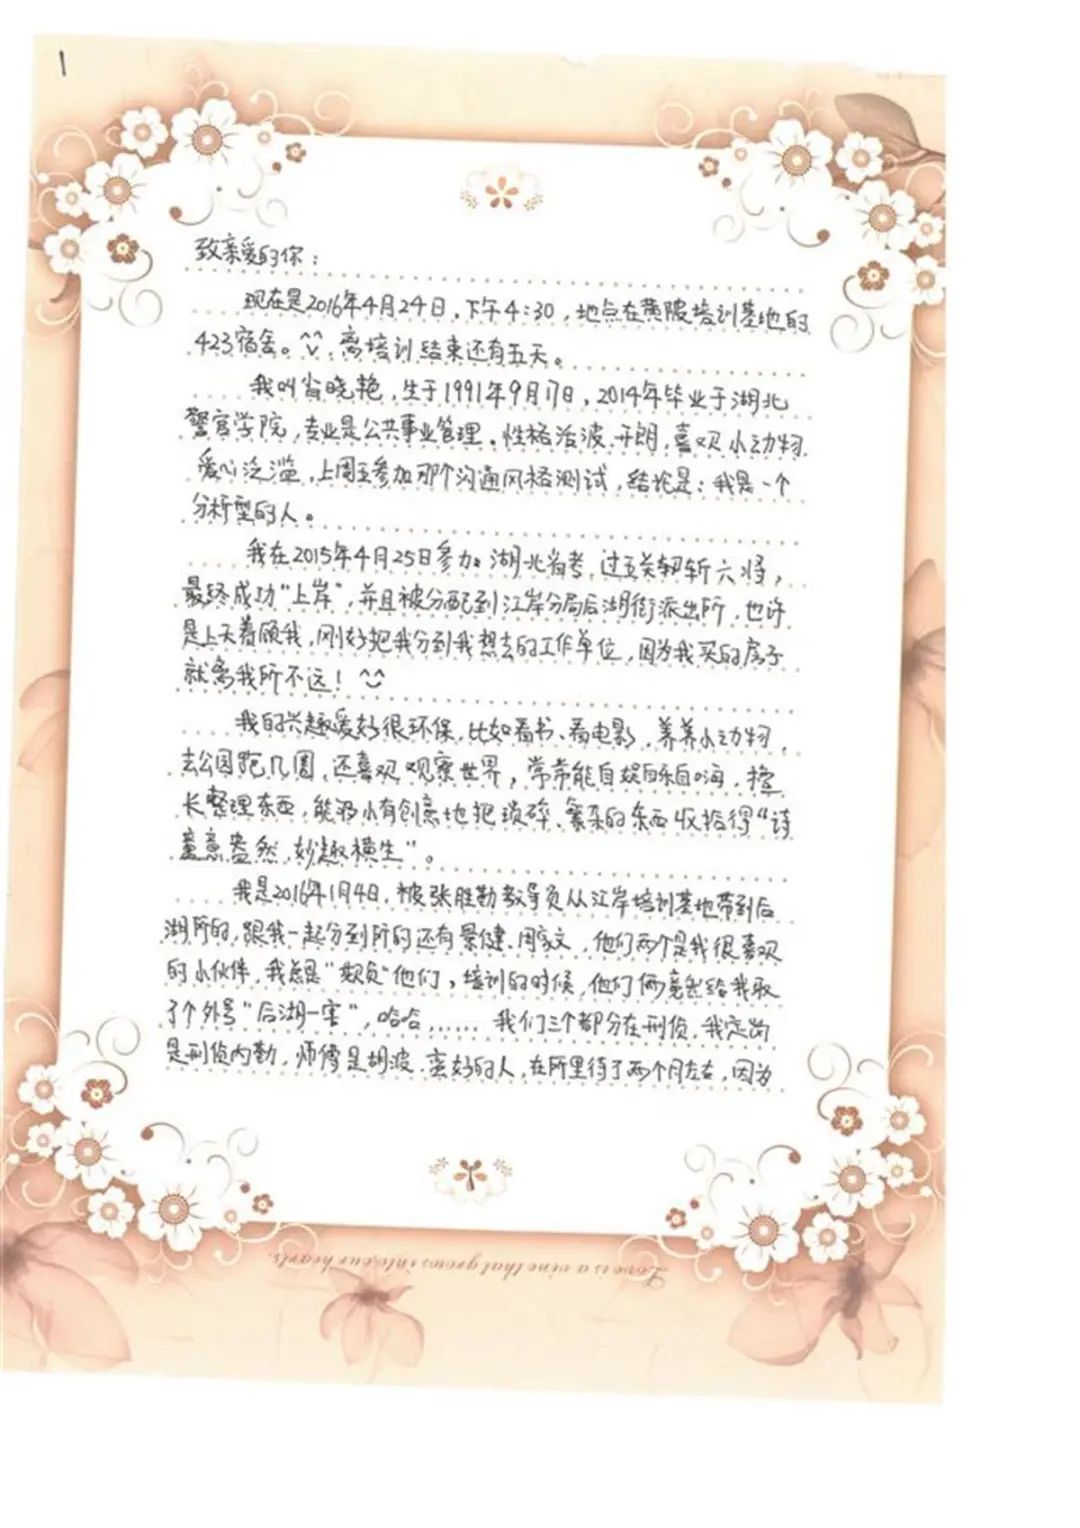 1
致亲爱的你：
现在是2016年4月24日，下午4:30，地点在黄陂培训基地的
423宿舍。^^，离培训结束还有五天。
我叫肖晓艳，生于1991年9月17日，2014年毕业于湖北
警官学院，专业是公共事业管理。性格活波、开朗，喜欢小动物，
爱心泛滥，上周五参加那个沟通风格测试，结论是：我是一个
分析型的人。
我在2015年4月25日参加湖北省考，过五关斩六将，
最终成功“上岸”，并且被分配到江岸分局后湖街派出所，也许
是上天着顾我，刚好把我分到我想去的工作单位，因为我买的房子
就离我所不远！^^
我的兴趣爱好很环保，比如看书、看电影，养养小动物，
去公园跑几圈，还喜欢观察世界，常常能自娱自乐自嗨，擅
长整理东西，能够小有创意地把琐碎、繁杂的东西收拾得“诗
意盎然，妙趣横生”。
我是2016年1月4日，被张胜勤教导员从江岸培训基地带到后
湖所的，跟我一起分到所的还有景健、周家文，他们两个是我很喜欢
的小伙伴，我总是“欺负”他们，培训的时候，他们俩竟然给我取
了个外号“后湖一害”，哈哈……我们三个都分在刑侦，我定岗
是刑侦内勤，师傅是胡波，蛮好的人，在所里待了两个月左右，因为
Love is a vine that grows into our hearts.